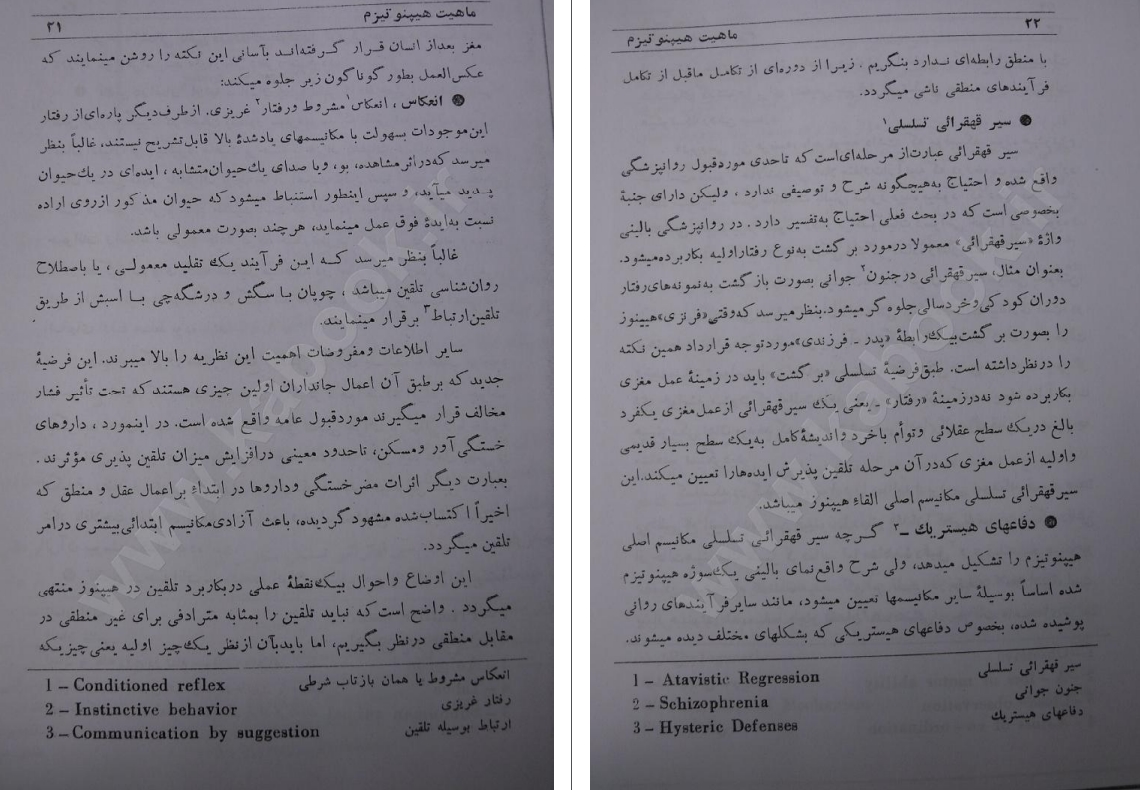 ماهیت هیپنوتیزم ۲۱
مغز بعداز انسان قرار گرفته‌اند بآسانی این نکته را روشن مینمایند که
عکس‌العمل بطور گوناگون زیر جلوه میکند:
انعکاس ، انعکاس۱ مشروط ورفتار۲ غریزی. ازطرف‌دیگر پاره‌ای‌از رفتار
این‌موجودات بسهولت با مکانیسمهای یادشدهٔ بالا قابل‌تشریح نیستند، غالباً بنظر
میرسد که‌دراثر مشاهده، بو، ویا صدای یك‌حیوان‌متشابه ، ایده‌ای در یك‌حیوان
پدید میآید، و سپس اینطور استنباط میشود که حیوان مذکور ازروی اراده
نسبت به‌ایدهٔ فوق عمل مینماید، هرچند بصورت معمولی باشد.
غالباً بنظر میرسد که این فرآیند یك تقلید معمولی ، یا باصطلاح
روان‌شناسی تلقین میباشد ، چوپان با سگش و درشگه‌چی با اسبش از طریق
تلقین‌ارتباط۳ برقرار مینمایند.
سایر اطلاعات ومفروضات اهمیت این نظریه را بالا میبرند. این فرضیهٔ
جدید که برطبق آن اعمال جانداران اولین چیزی هستند که تحت تأثیر فشار
مخالف قرار میگیرند موردقبول عامه واقع شده است. در اینمورد ، داروهای
خستگی‌آور ومسکن، تاحدود معینی درافزایش میزان تلقین پذیری مؤثرند .
بعبارت دیگر اثرات مضر خستگی وداروها در ابتداء براعمال عقل و منطق که
اخیراً اکتساب‌شده مشهود گردیده، باعث آزادی‌مکانیسم ابتدائی‌بیشتری درامر
تلقین میگردد.
این اوضاع واحوال بیك‌نقطهٔ عملی دربکاربرد تلقین در هیپنوز منتهی
میگردد . واضح است که نباید تلقین را بمثابه مترادفی برای غیر منطقی در
مقابل منطقی درنظر بگیریم، اما بایدبآن ازنظر یك‌چیز اولیه یعنی چیزیکه
1 – Conditioned reflex انعکاس مشروط یا همان بازتاب شرطی
2 – Instinctive behavior رفتار غریزی
3 – Communication by suggestion ارتباط بوسیله تلقین
۲۲ ماهیت هیپنوتیزم
با منطق رابطه‌ای ندارد بنگریم ، زیرا از دوره‌ای از تکامل ماقبل از تکامل
فرآیندهای منطقی ناشی میگردد.
سیر قهقرائی تسلسلی۱
سیر قهقرائی عبارت‌از مرحله‌ای‌است که تاحدی موردقبول روانپزشگی
واقع شده و احتیاج به‌هیچگونه شرح و توصیفی ندارد ، ولیکن دارای جنبهٔ
بخصوصی است که در بحث فعلی احتیاج به‌تفسیر دارد . در روانپزشگی بالینی
واژهٔ «سیرقهقرائی» معمولا درمورد برگشت به‌نوع رفتاراولیه بکاربرده‌میشود.
بعنوان مثال، سیر قهقرائی درجنون۲ جوانی بصورت بازگشت به‌نمونه‌های‌رفتار
دوران کودکی وخردسالی جلوه‌گر میشود.بنظر میرسد که‌وقتی«فرنزی»هیپنوز
را بصورت برگشت‌بیك‌رابطهٔ «پدر ـ فرزندی»موردتوجه قرارداد همین نکته
را درنظر داشته است. طبق‌فرضیهٔ تسلسلی «برگشت» باید در زمینهٔ عمل مغزی
بکاربرده شود نه‌درزمینهٔ «رفتار» ـ یعنی یك سیرقهقرائی ازعمل‌مغزی یکفرد
بالغ دریك سطح عقلائی وتوأم باخرد واندیشهٔ‌کامل به‌یك سطح بسیار قدیمی
واولیه ازعمل مغزی که‌درآن مرحله تلقین پذیرش ایده‌هارا تعیین میکند.این
سیرقهقرائی تسلسلی مکانیسم اصلی القاء هیپنوز میباشد.
دفاعهای هیستریك ـ۳ گرچه سیر قهقرائی تسلسلی مکانیسم اصلی
هیپنوتیزم را تشکیل میدهد، ولی شرح واقع‌نمای بالینی یك‌سوژه هیپنوتیزم
شده اساساً بوسیلهٔ سایر مکانیسمها تعیین میشود، مانند سایرفرآیندهای روانی
پوشیده شده، بخصوص دفاعهای هیستریکی که بشکلهای مختلف دیده میشوند.
1 – Atavistic Regression سیر قهقرائی تسلسلی
2 – Schizophrenia جنون جوانی
3 – Hysteric Defenses دفاعهای هیستریك
www.kabook.ir
www.kabook.ir